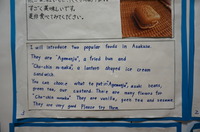 すごく美味しいです。
是非食べてみてください。
I will introduce two popular foods in Asakusa.
They are "Agemanju", a fried bun and
"Cho-chin monaka", a lantern shaped ice cream
sandwich.
You can choose what to put in "Agemanju", azuki beans,
green tea, and custard. There are many flavors for
"Cho-chin monaka". They are vanilla, green tea and sesame.
They are very good. Please try them.